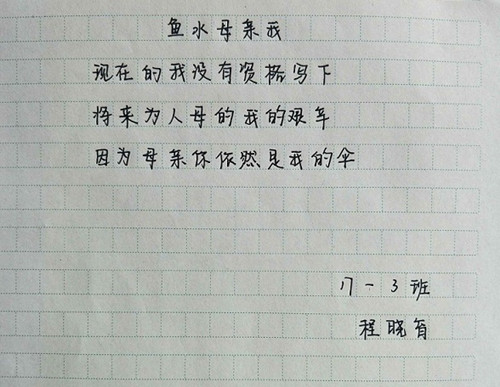 鱼水母亲我
现在的我没有资格写下
将来为人母的我的艰辛
因为母亲你依然是我的伞
17-3班
程晓有